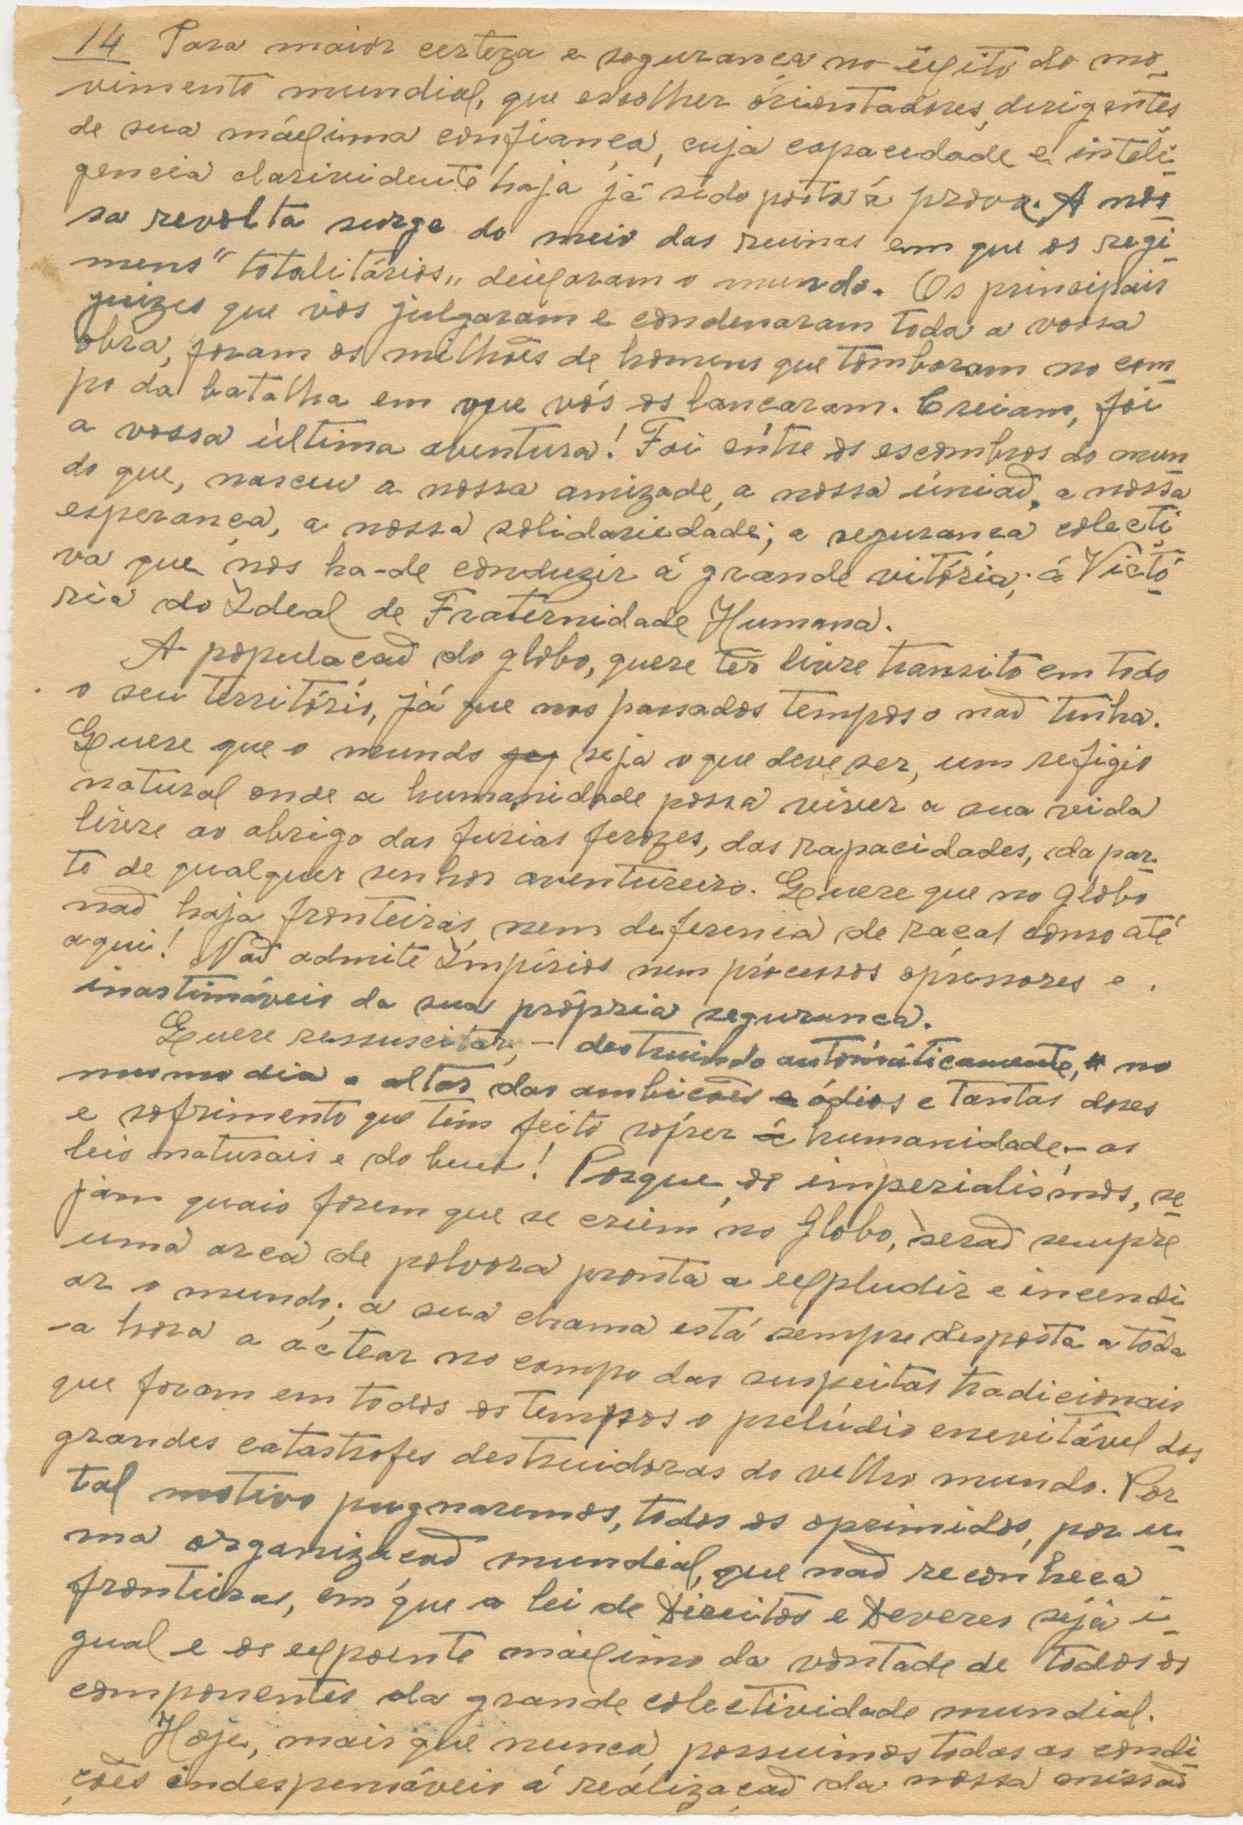 14 Para maior certeza e segurança no êxito do mo-
vimento mundial, que escolher órientadores, dirigentes
de sua máxima confiança, cuja capacedade e inteli-
gencia clarividente haja já sido posta á prova. A nos-
sa revolta surge do meio das ruinas em que os regi-
mens "totalitários" deixaram o mundo. Os principais
juizes que vos julgaram e condenaram toda a vossa
obra, foram os milhões de homens que tombaram no cam-
po da batalha em que vós os lançaram. Creiam, foi
a vossa última aventura! Foi entre os escombros do mun-
do que, nasceu a nossa amizade, a nossa úniaõ, a nossa
esperança, a nossa solidariedade; a segurança colecti-
va que nos ha-de conduzir á grande vitória; á Victó-
ria do Ideal de Fraternidade Humana.
A populaçaõ do globo, quere ter livre transito em todo
o seu território, já que nos passados tempos o naõ tinha.
Quere que o mundo seja o que deve ser, um refigio
natural onde a humanidade possa viver a sua vida
livre ao abrigo das furias ferozes, das rapacidades, da par-
te de qualquer senhor aventureiro. Quere que no globo
naõ haja fronteiras, nem deferencia de raças como até
aqui! Naõ admite Impírios nem processos opressores e
inastimáveis da sua própria segurança.
Quere ressuscitar, - destruindo automáticamente, no
mesmo dia o altar das ambições e ódios e tantas dores
e sofrimento que tem feito sofrer á humanidade - as
leis naturais e do bem! Porque, os imperialismos, se-
jam quais forem que se criem no Globo, seraõ sempre
uma arca de polvora pronta a expludir e incendi-
ar o mundo; a sua chama está sempre desposta a toda
-a hora a actear no campo das suspeitas tradicionais
que foram em todos os tempos o prelúdio enevitável das
grandes catastrofes destruidoras do velho mundo. Por
tal motivo pugnaremos, todos os oprimidos, por u-
ma organizaçaõ mundial, que naõ reconheca
fronteiras, em que a lei de Direitos e Deveres sejá i-
gual e os expoente máximo da vontade de todos os
componentes da grande colectividade mundial.
Hoje, mais que nunca, possuimos todas as condi-
ções indespensáveis á realizaçaõ da nossa missaõ